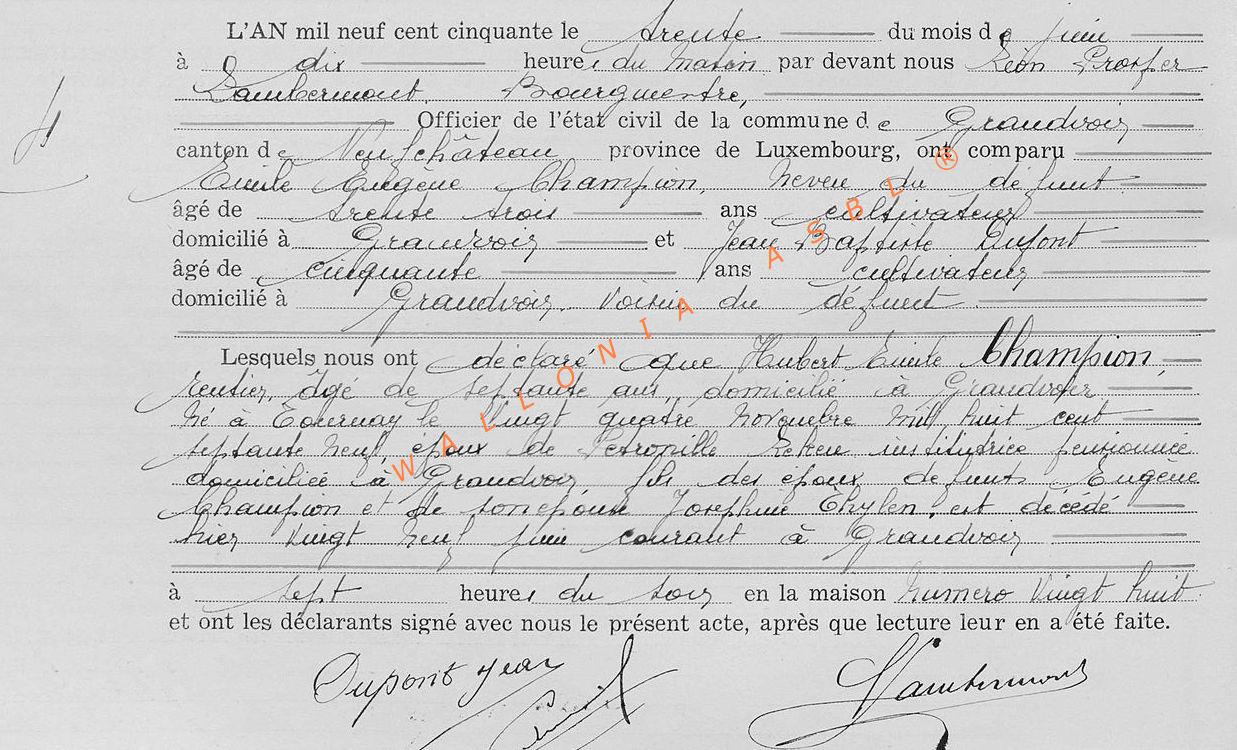 L'AN mil neuf cent cinquante le trente du mois de juin
à dix heures du matin par devant nous Léon Prosper
Lambermont, Bourgmestre,
Officier de l'état civil de la commune de Grandvoir
canton de Neufchâteau province de Luxembourg, ont comparu
Emile Eugène Champion, neveu du défunt
âgé de trente trois ans cultivateur
domicilié à Grandvoir et Jean Baptiste Dupont
âgé de cinquante ans cultivateur
domicilié à Grandvoir, voisin du défunt
Lesquels nous ont déclaré que Hubert Emile Champion,
rentier, âgé de septante ans, domicilié à Grandvoir
né à Tournay le vingt quatre novembre mil huit cent
septante neuf, époux de institutrice pensionnée
domiciliée à Grandvoir fils des époux defunts Eugène
Champion et de son épouse Joséphine Thylen, est décédé
hier vingt neuf juin courant à Grandvoir
à sept heures du soir en la maison numero vingt huit
et ont les déclarants signé avec nous le présent acte, après que lecture leur en a été faite.
Dupont Jean
Lambermont
WALLONIA ASBL ®